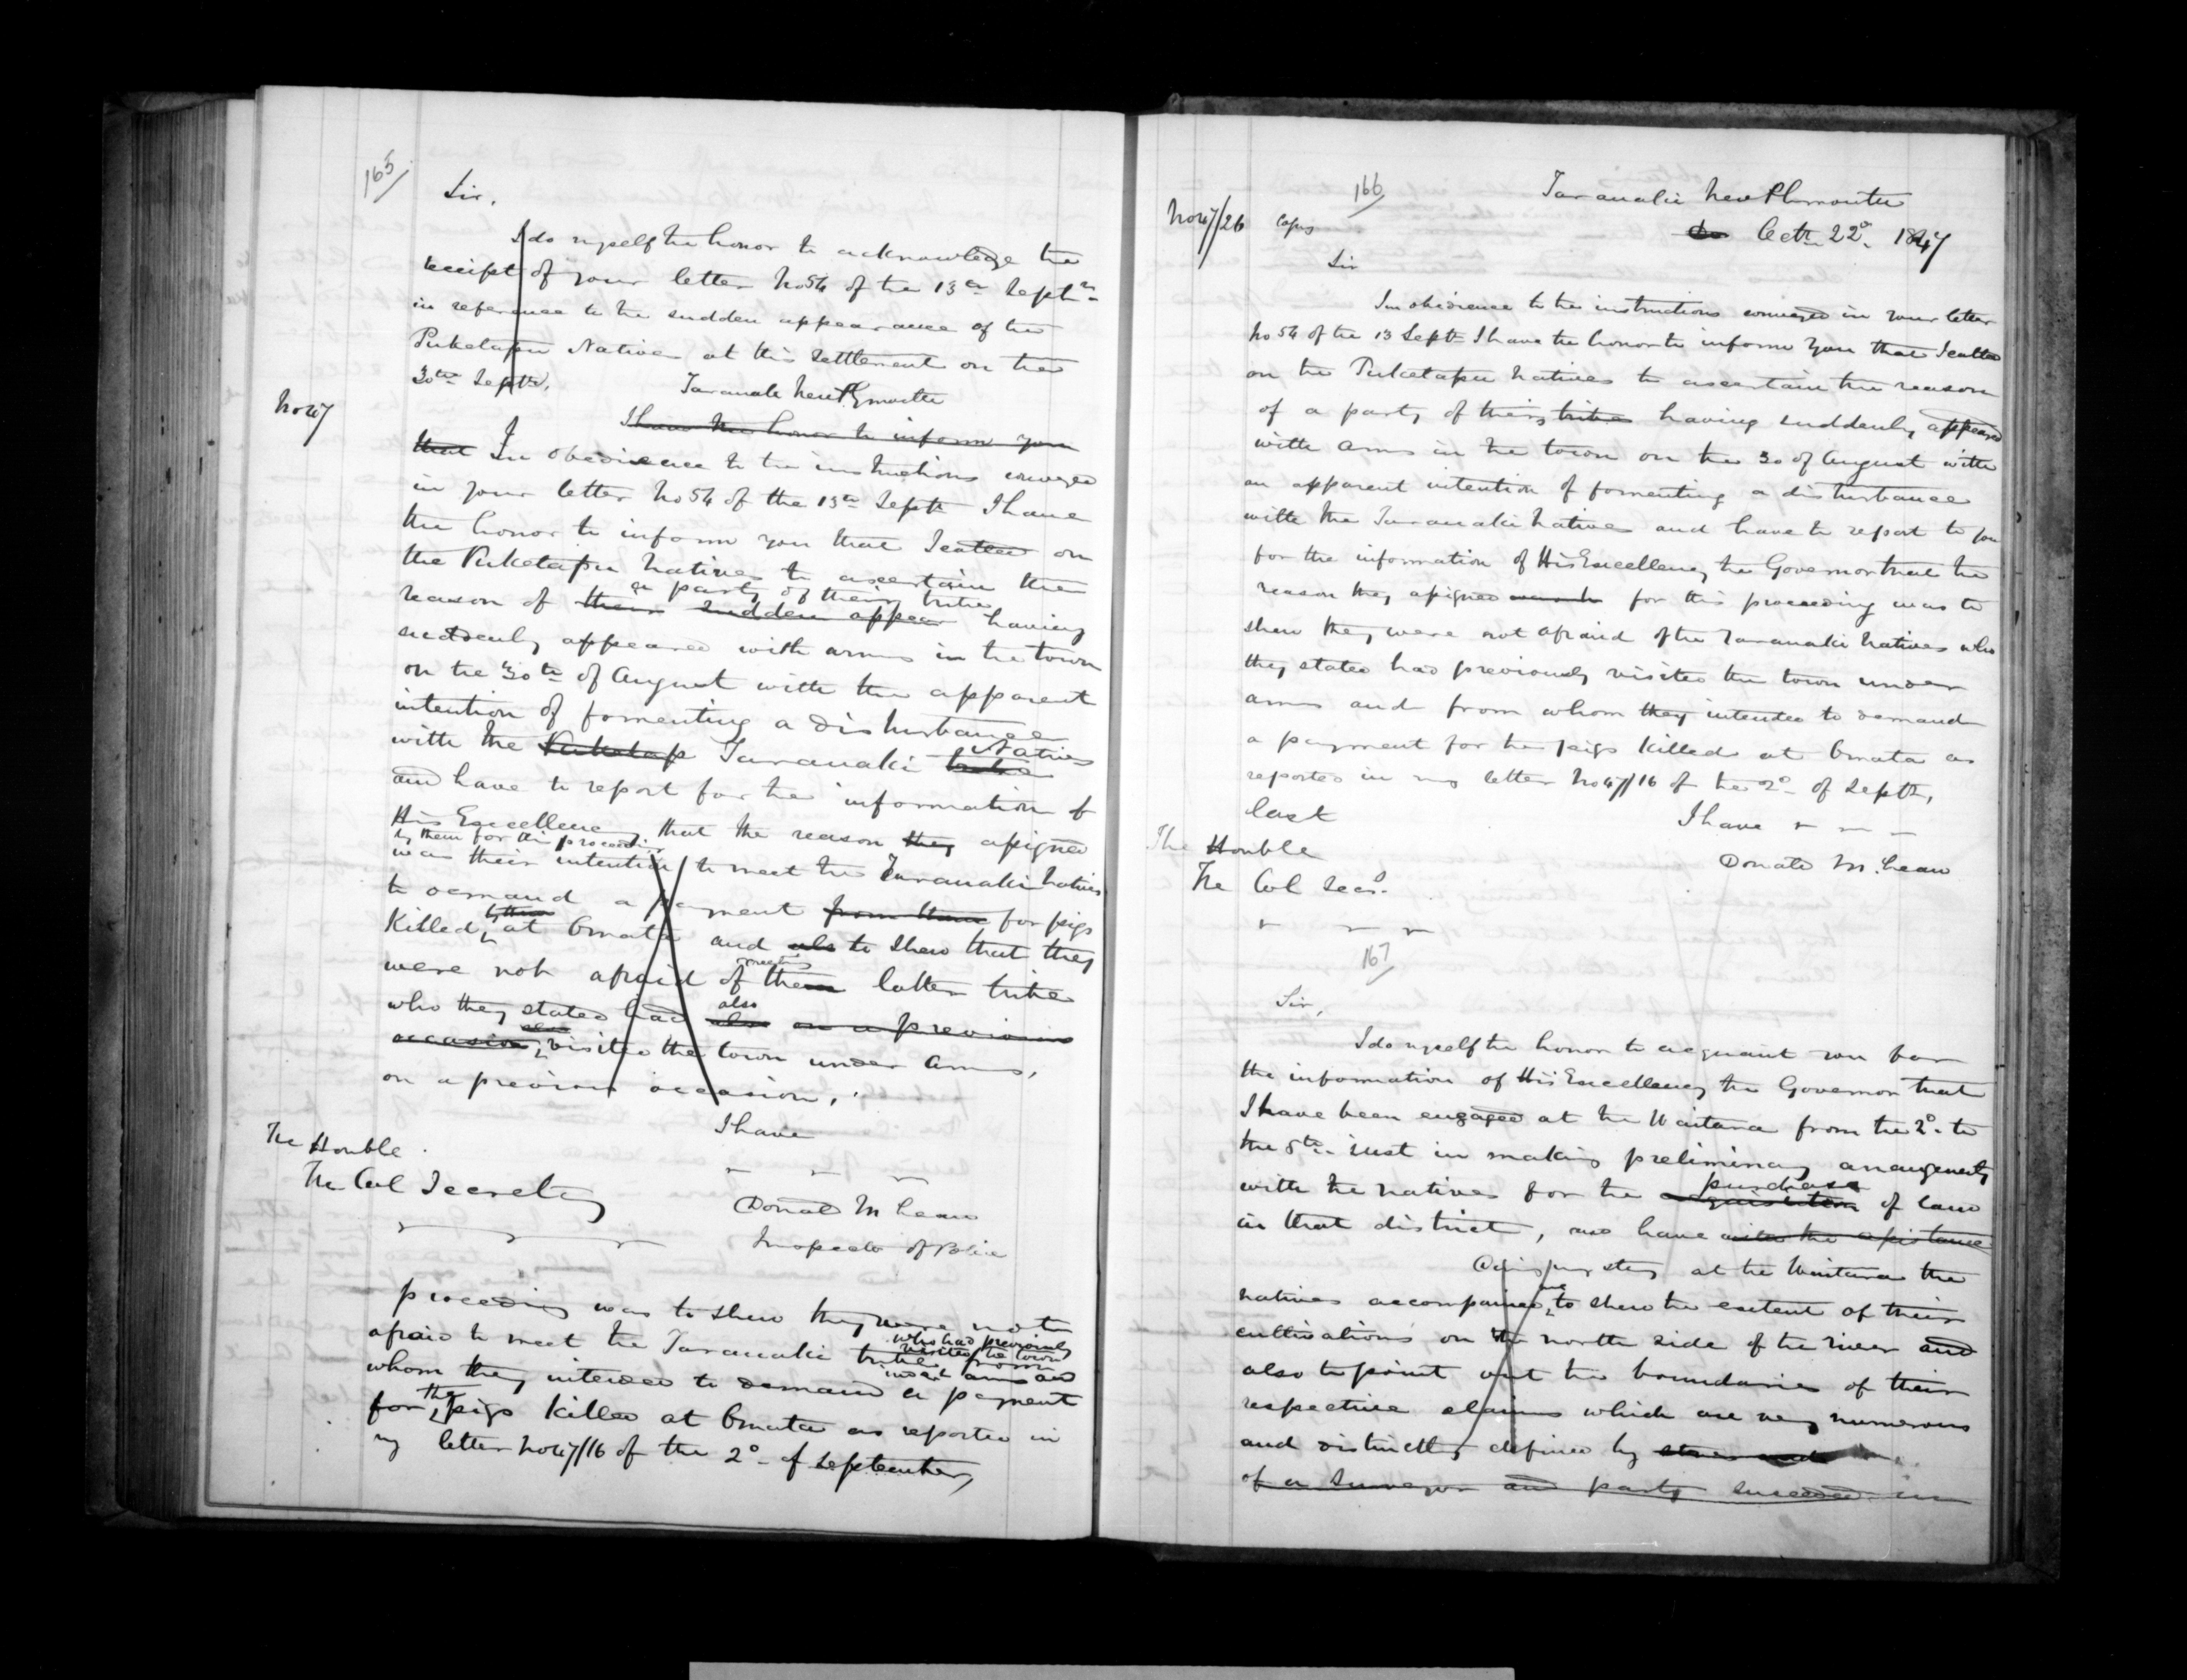 165/
Sir,
I do myself the honor to acknowledge the
receipt of your letter No 54 of the 13th Septr
in reference to the sudden appearance of the
Puketapu Natives at this settlement on the
30th Septr.
Taranaki New Plymouth
No 47
I have the honor to inform you
that In obedience to the instructions conveyed
in your letter No 54 of the 13th Septr I have
the honor to inform you that I called on
the Puketapu Natives to ascertain the
a party of their tribe
reason of their sudden appear having
suddenly appeared with arms in the town
on the 30th of August with the apparent
intention of fomenting a disturbance
Natives
with the Puketap Taranaki tribe
and have to report for the information of
His Excellency that the reason they assigned
by them for this proceeding
was their intention to meet the Taranaki Natives
to demand a payment from them for pigs
killed at Omata and als to shew that they
meeting
were not afraid of them latter tribe
also
who they stated had also on a previous
occasion, visited the town under arms,
on a previous occasion,
I have
The Honble
The Col Secretary
Donald McLean
Inspector of Police
proceeding was to shew they were not
who had previously
afraid to meet the Taranaki tribe from
visited the town
under arms and
whom they intended to demand a payment
the
for pigs killed at Omata as reported in
my letter No 47/16 of the 2d of September,
166/
Taranaki New Plymouth
Octr 22d 1847
No 47/26 Copy
Sir
In obedience to the instructions conveyed in your letter
No 54 of the 13 Septr I have the honor to inform you that I called
on the Puketapu Natives to ascertain the reason
of a party of their tribe having suddenly appeared
with arms in the town on the 30 of August with
an apparent intention of fomenting a disturbance
with the Taranaki Natives and have to report to you
for the information of His Excellency the Governor that the
reason they assigned for this proceeding was to
shew they were not afraid of the Taranaki Natives who
they stated had previously visited the town under
arms and from whom they intended to demand
a payment for the pigs killed at Omata as
reported in my letter No 47/16 of the 2d of Septr,
last
I have
The Honble
Donald McLean
The Col Secy.
167/
Sir,
I do myself the honor to acquaint you for
the information of His Excellency the Governor that
I have been engaged at the Waitara from the 2d to
the 8th inst in making preliminary arrangements
purchase
with the natives for the acquisition of land
in that district, and have with the assistance
During my stay at the Waitara the
me
natives accompanied to shew the extent of their
cultivations on the north side of the river and
also to point out the boundaries of their
respective claims which are very numerous
and distinctly defined by
of a Surveyor and party succeeded in